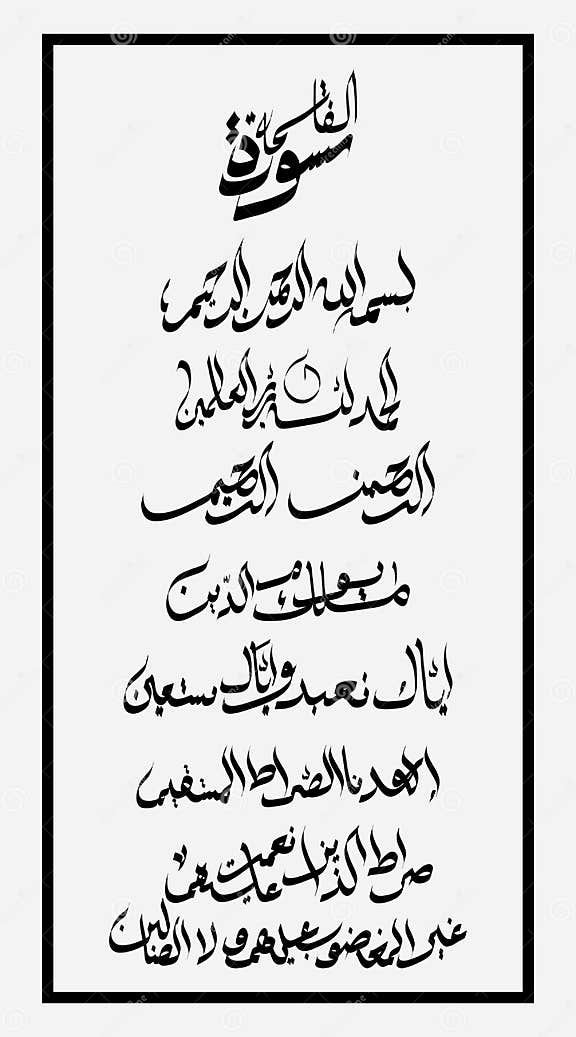 سورة الفاتحة
بسم الله الرحمن الرحيم
الحمد لله رب العالمين
الرحمن الرحيم
مالك يوم الدين
إياك نعبد وإياك نستعين
إهدنا الصراط المستقيم
صراط الذين أنعمت عليهم
غير المغضوب عليهم ولا الضالين